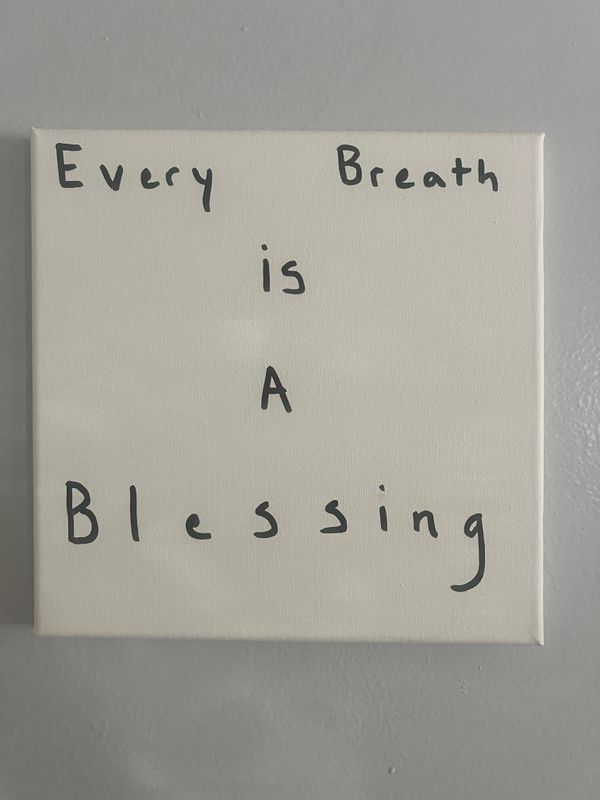 Every Breath
is
A
Blessing